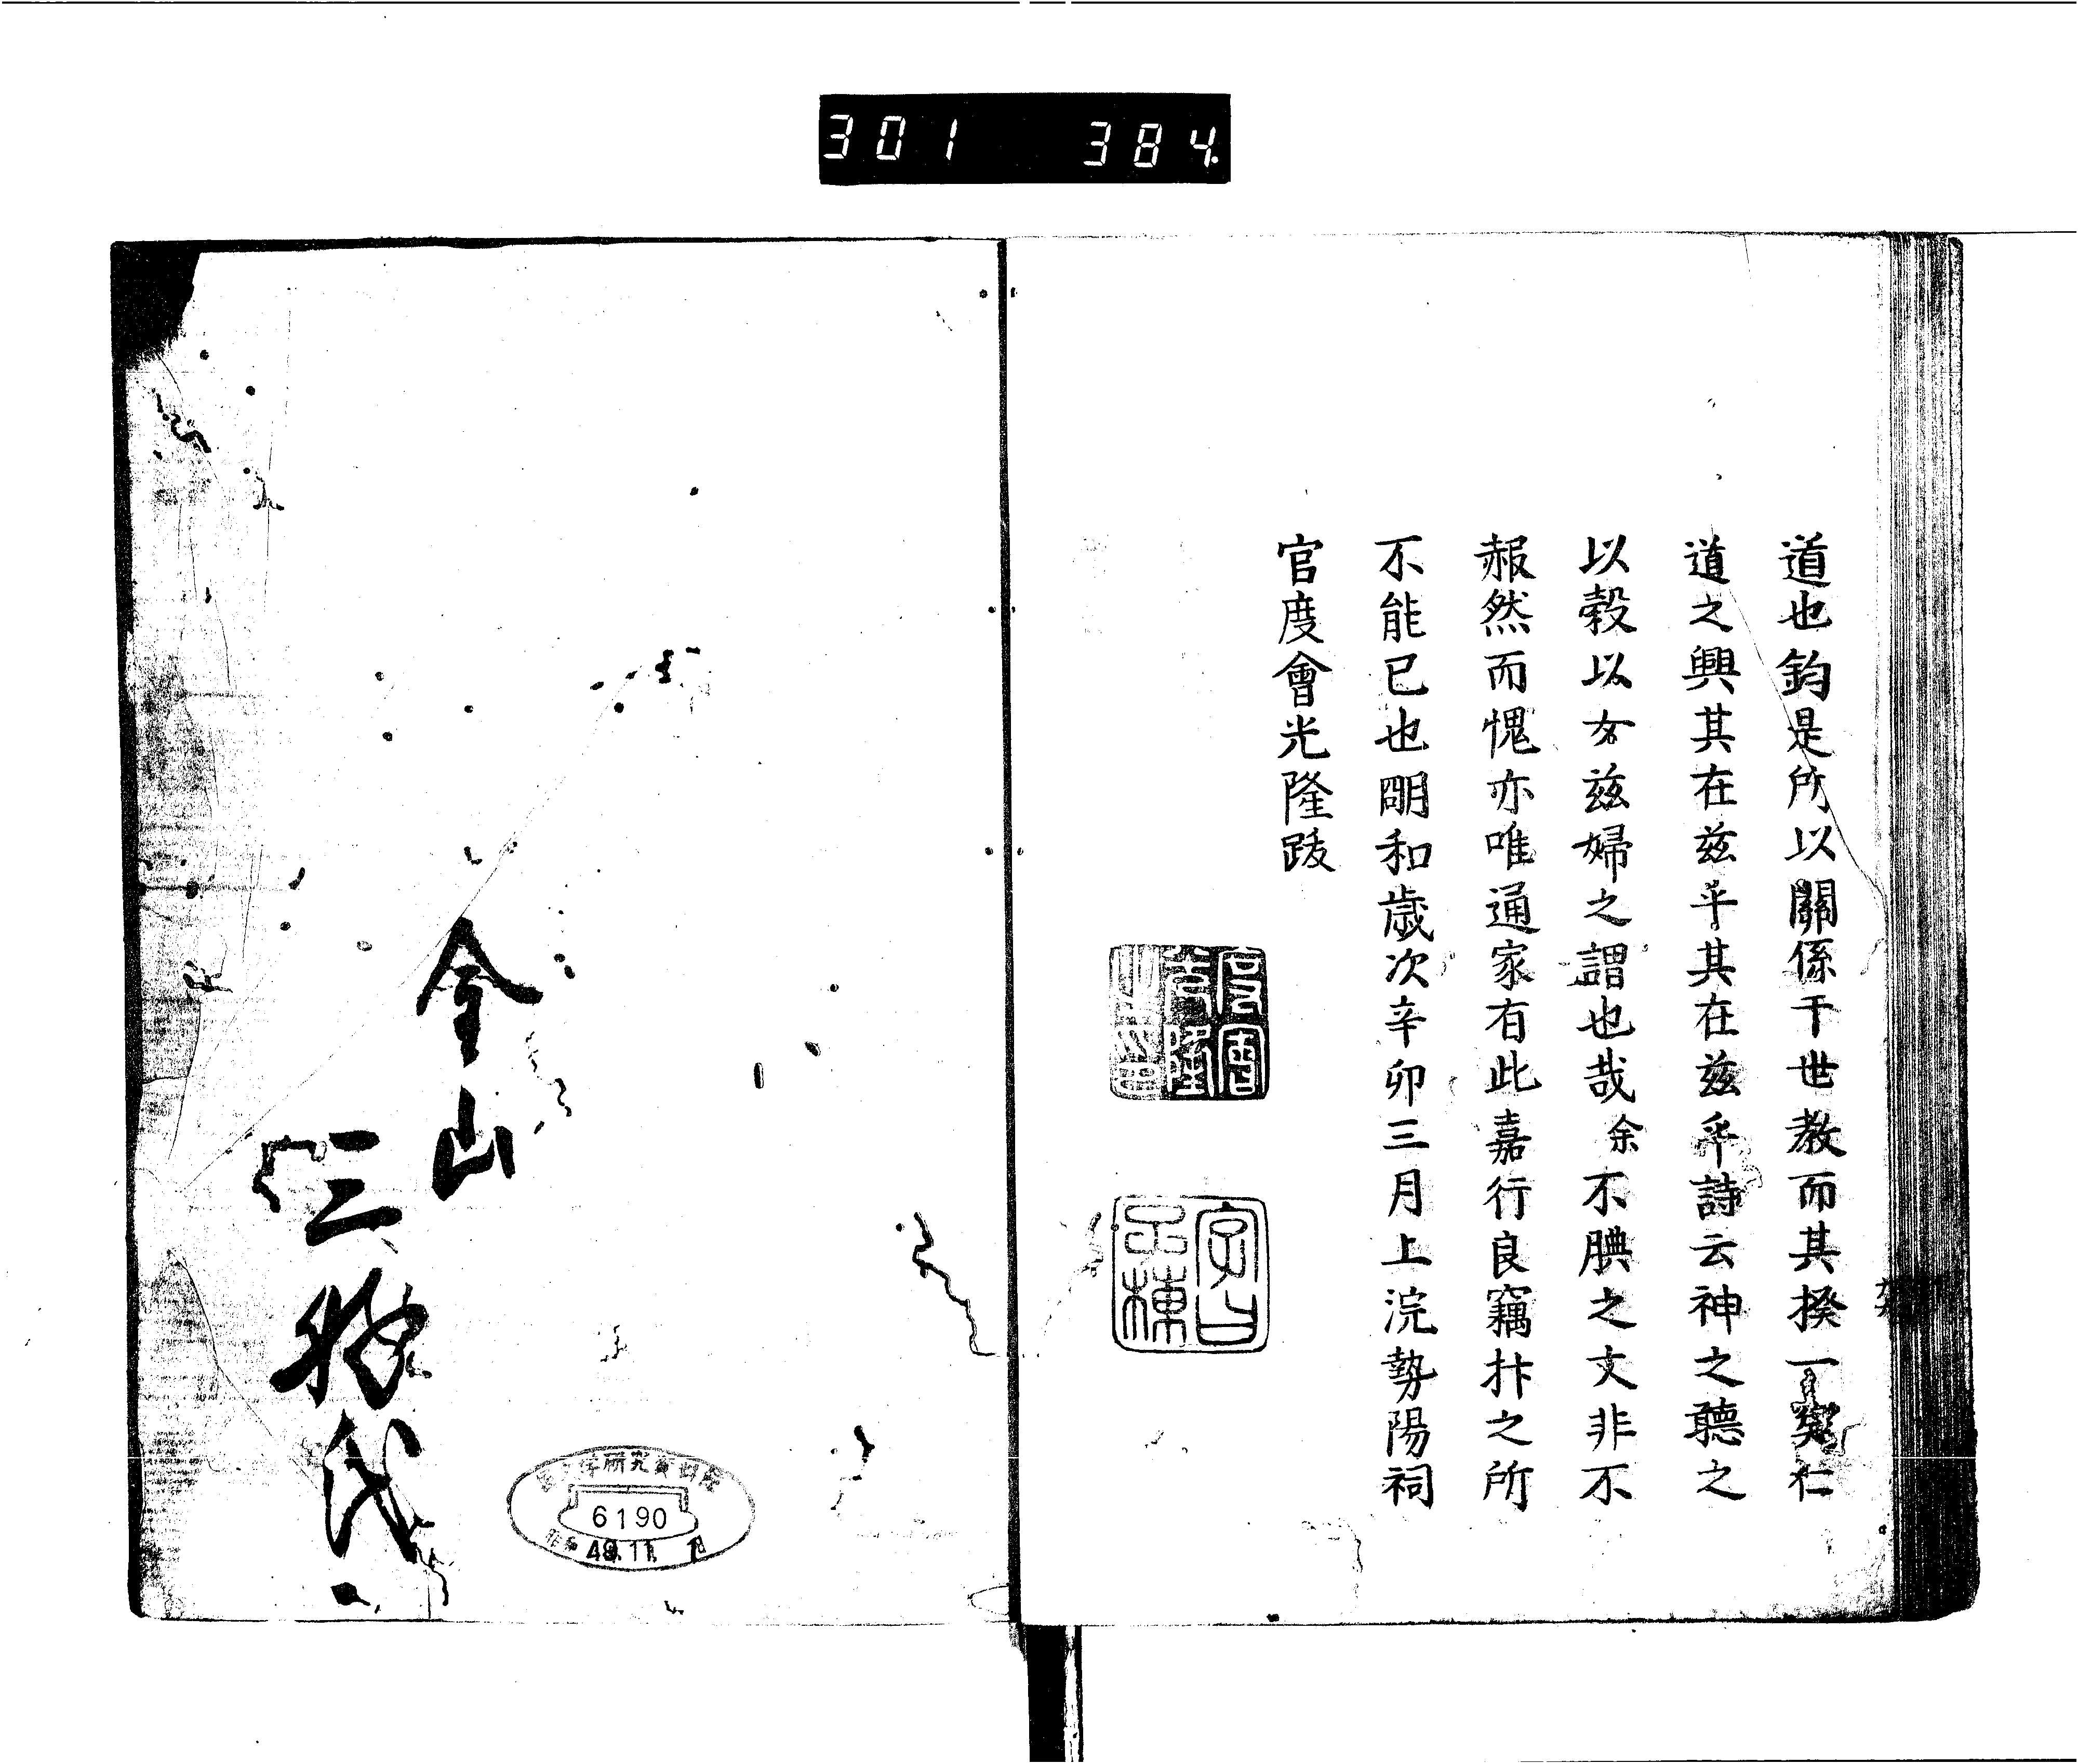 301 384
道也鈞是所以關係干世教而其揆一矣仁
道之興其在茲乎其在茲乎詩云神之聽之
以穀以女茲婦之謂也哉余不腆之文非不
赧然而愧亦唯通家有此嘉行良竊抃之所
不能已也明和歳次辛卯三月上浣勢陽祠
官度會光隆跋
度會
光隆
之印
字曰
金山
6190